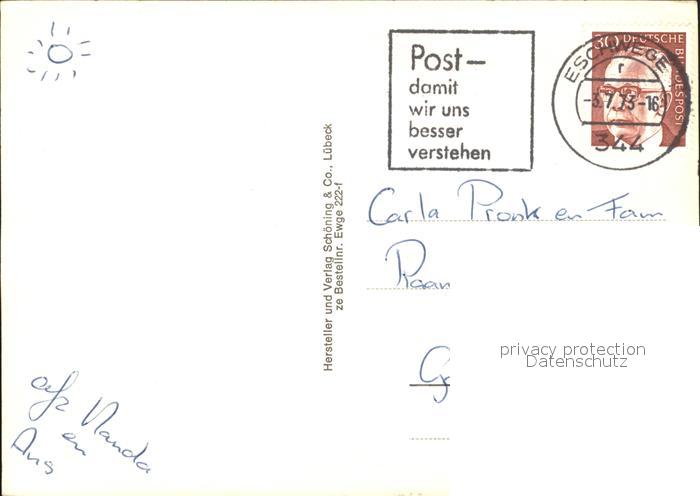 Post-
damit
wir uns
besser
verstehen
30 DEUTSCHE BUNDESPOST
ESCHWEGE
r
-3.7.73-16
344
Hersteller und Verlag Schöning & Co., Lübeck
ze Bestellnr. Ewge 222-f
Carla Pronk en Fam
privacy protection
Datenschutz
afz Nanda
en